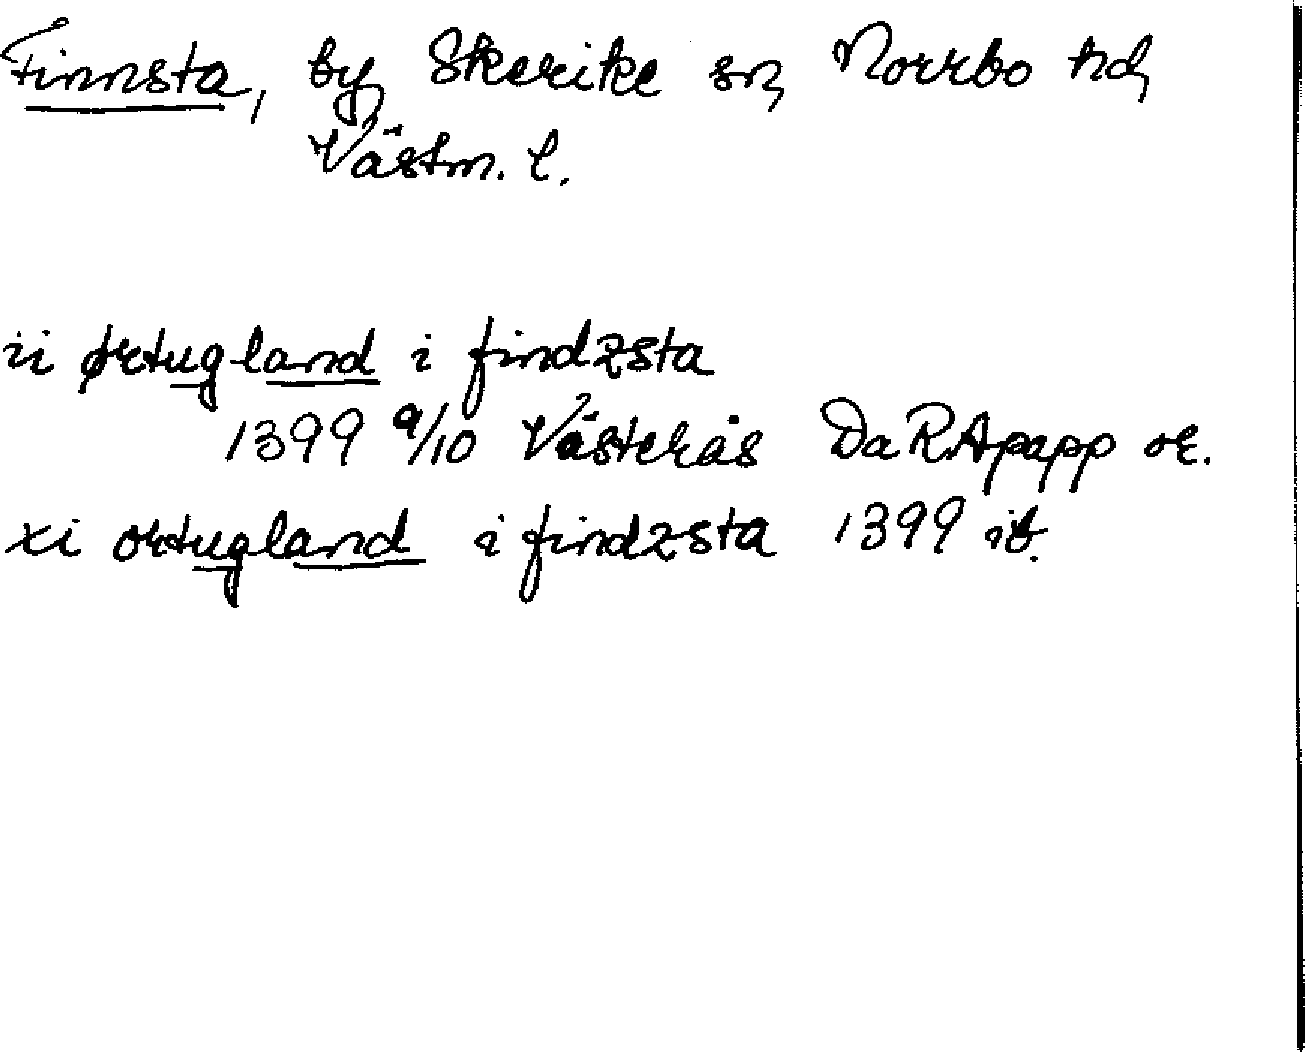 Finnsta, by, Skerike sn, Norrbo hd,
Västm. l.
ii ørtugland i findzsta
1399 9/10 Västerås Da RApapp or.
xi ortugland i findzsta 1399 ib.